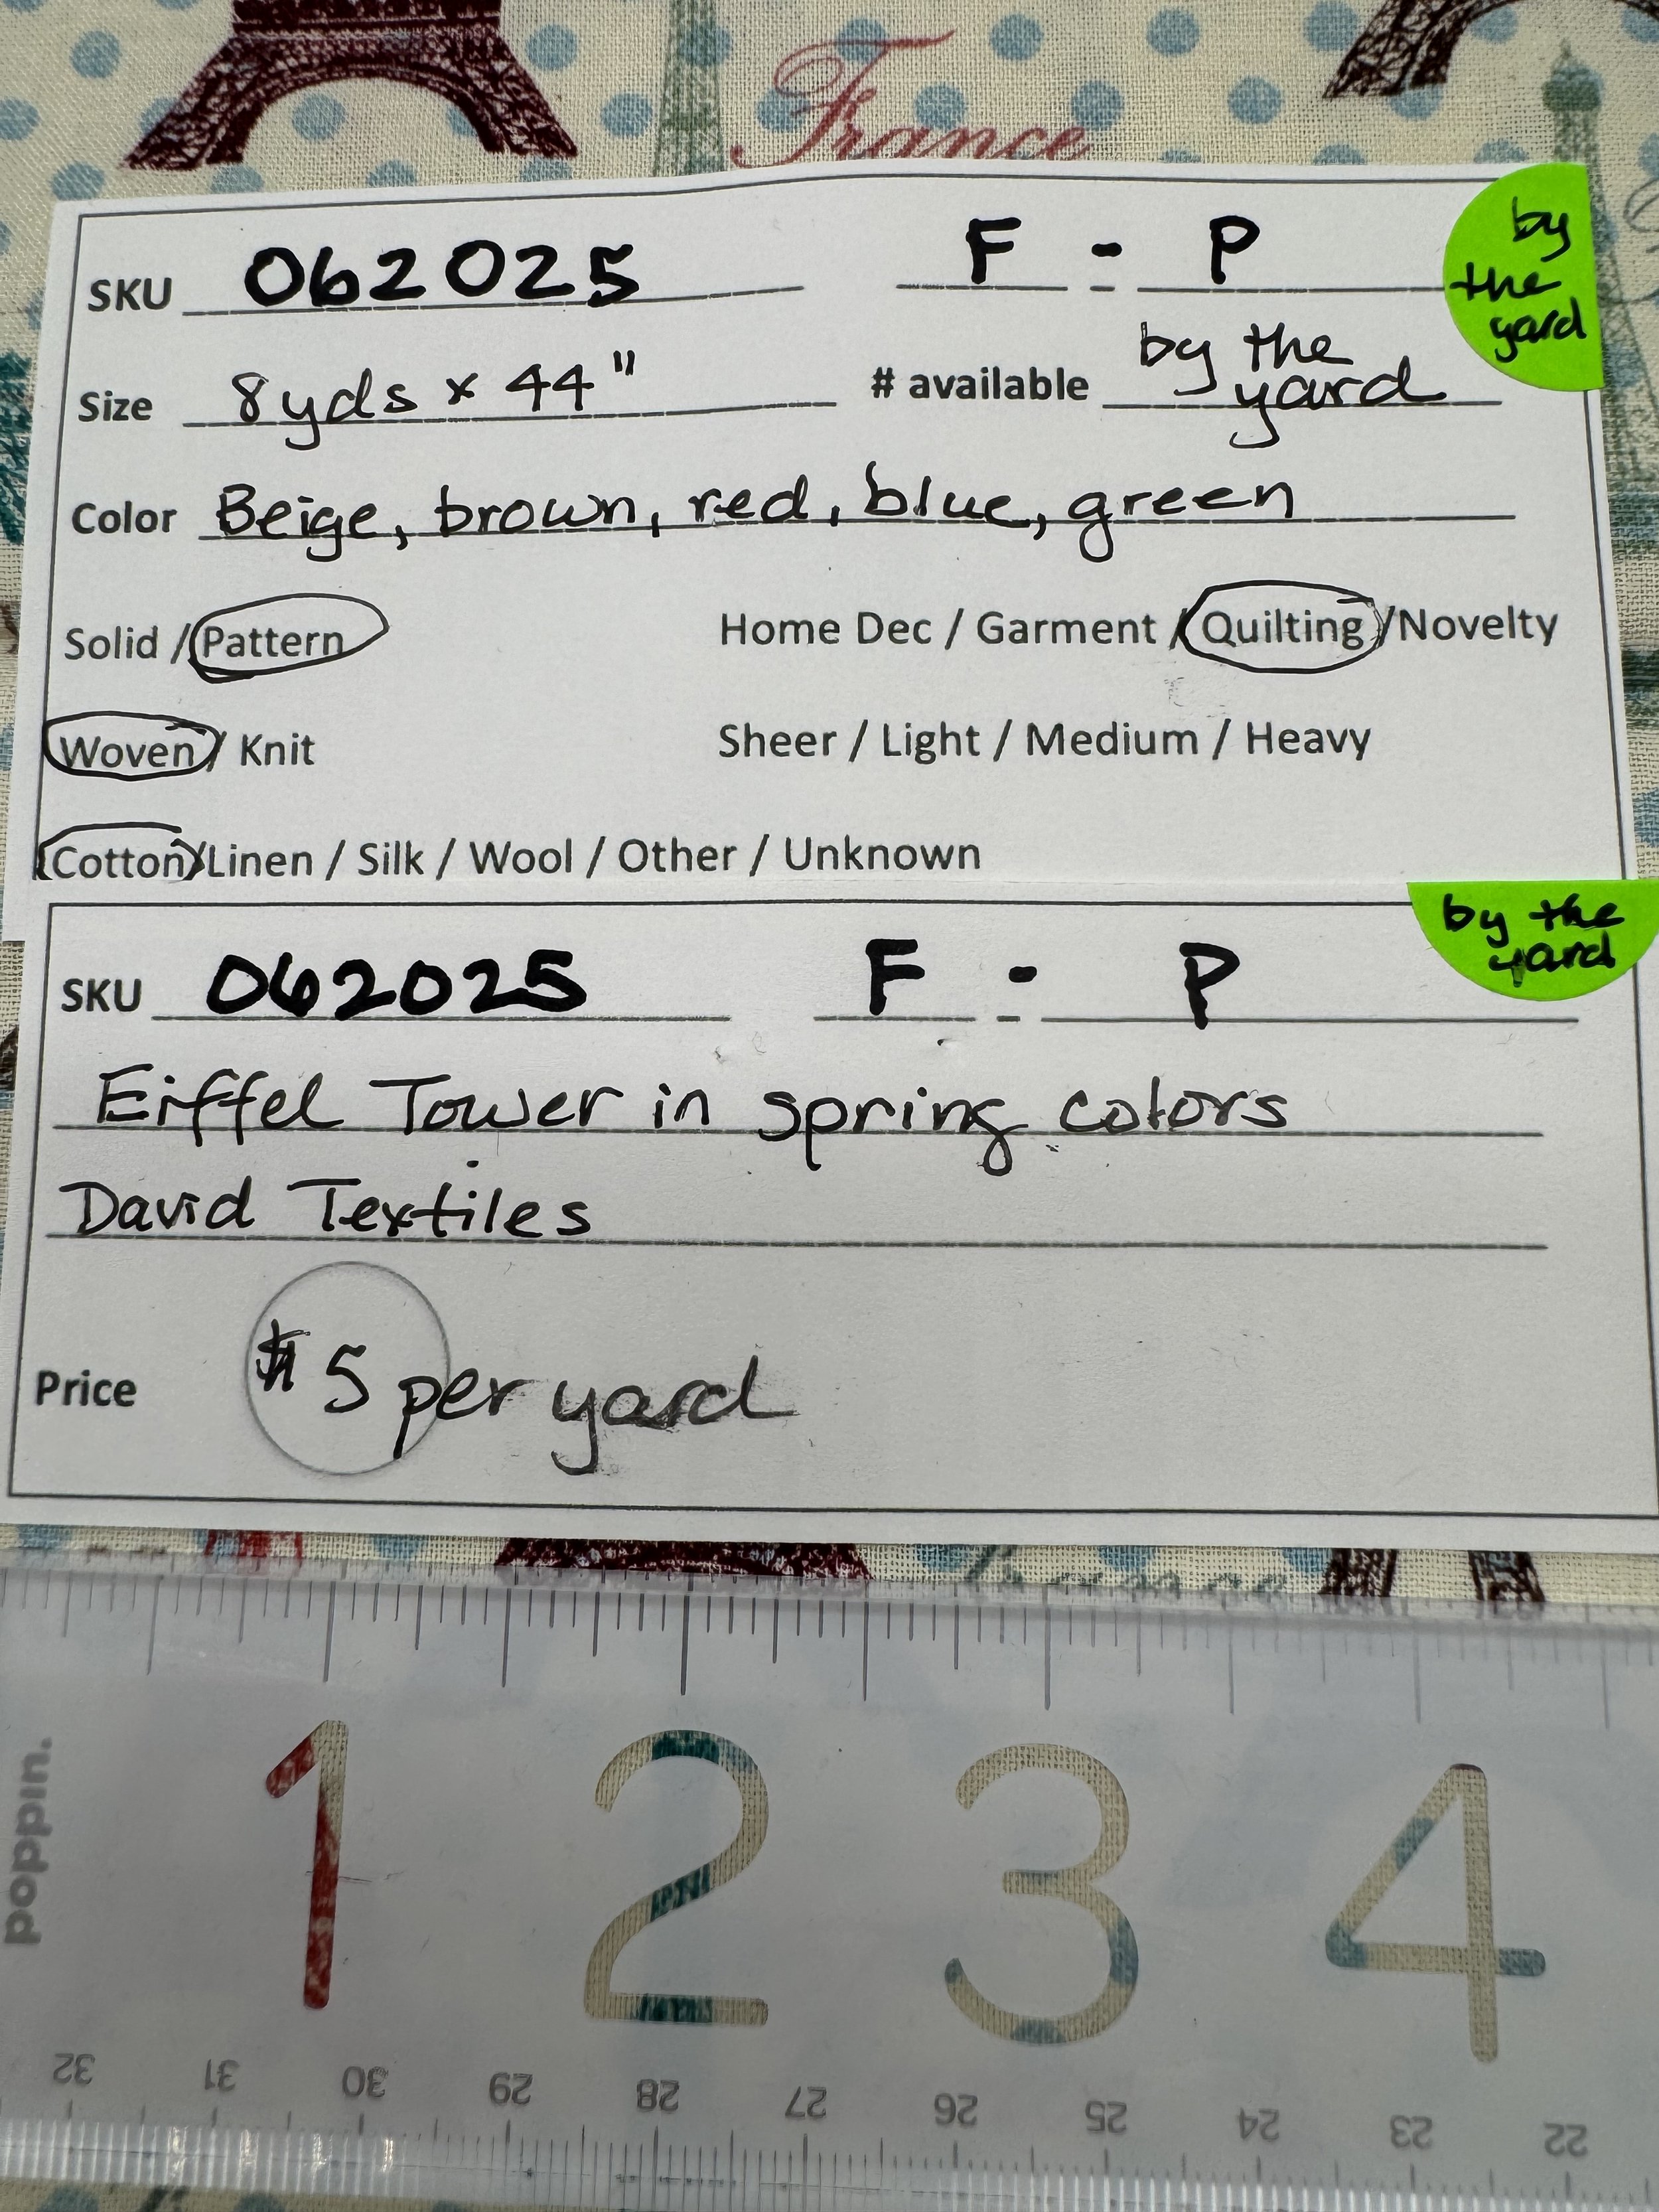 France
SKU 062025 F - P
by the yard
Size 8yds x 44" # available by the yard
Color Beige, brown, red, blue, green
Solid / Pattern Home Dec / Garment / Quilting / Novelty
Woven / Knit Sheer / Light / Medium / Heavy
Cotton / Linen / Silk / Wool / Other / Unknown
by the yard
SKU 062025 F - P
Eiffel Tower in spring colors
David Textiles
Price $5 per yard
poppin.
1 2 3 4
32 31 30 29 28 27 26 25 24 23 22